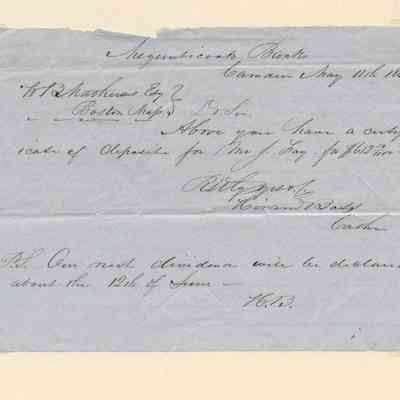 Megunticook Bank
Camden May 11th 18
W B Mathews Esq
Boston Mass Dr Sir
Above you have a certif
icate of deposite for Mr J. Fay for
Hiram Bass
Cash
P.S. Our next dividend will be declared
about the 12th of June —
H. B.